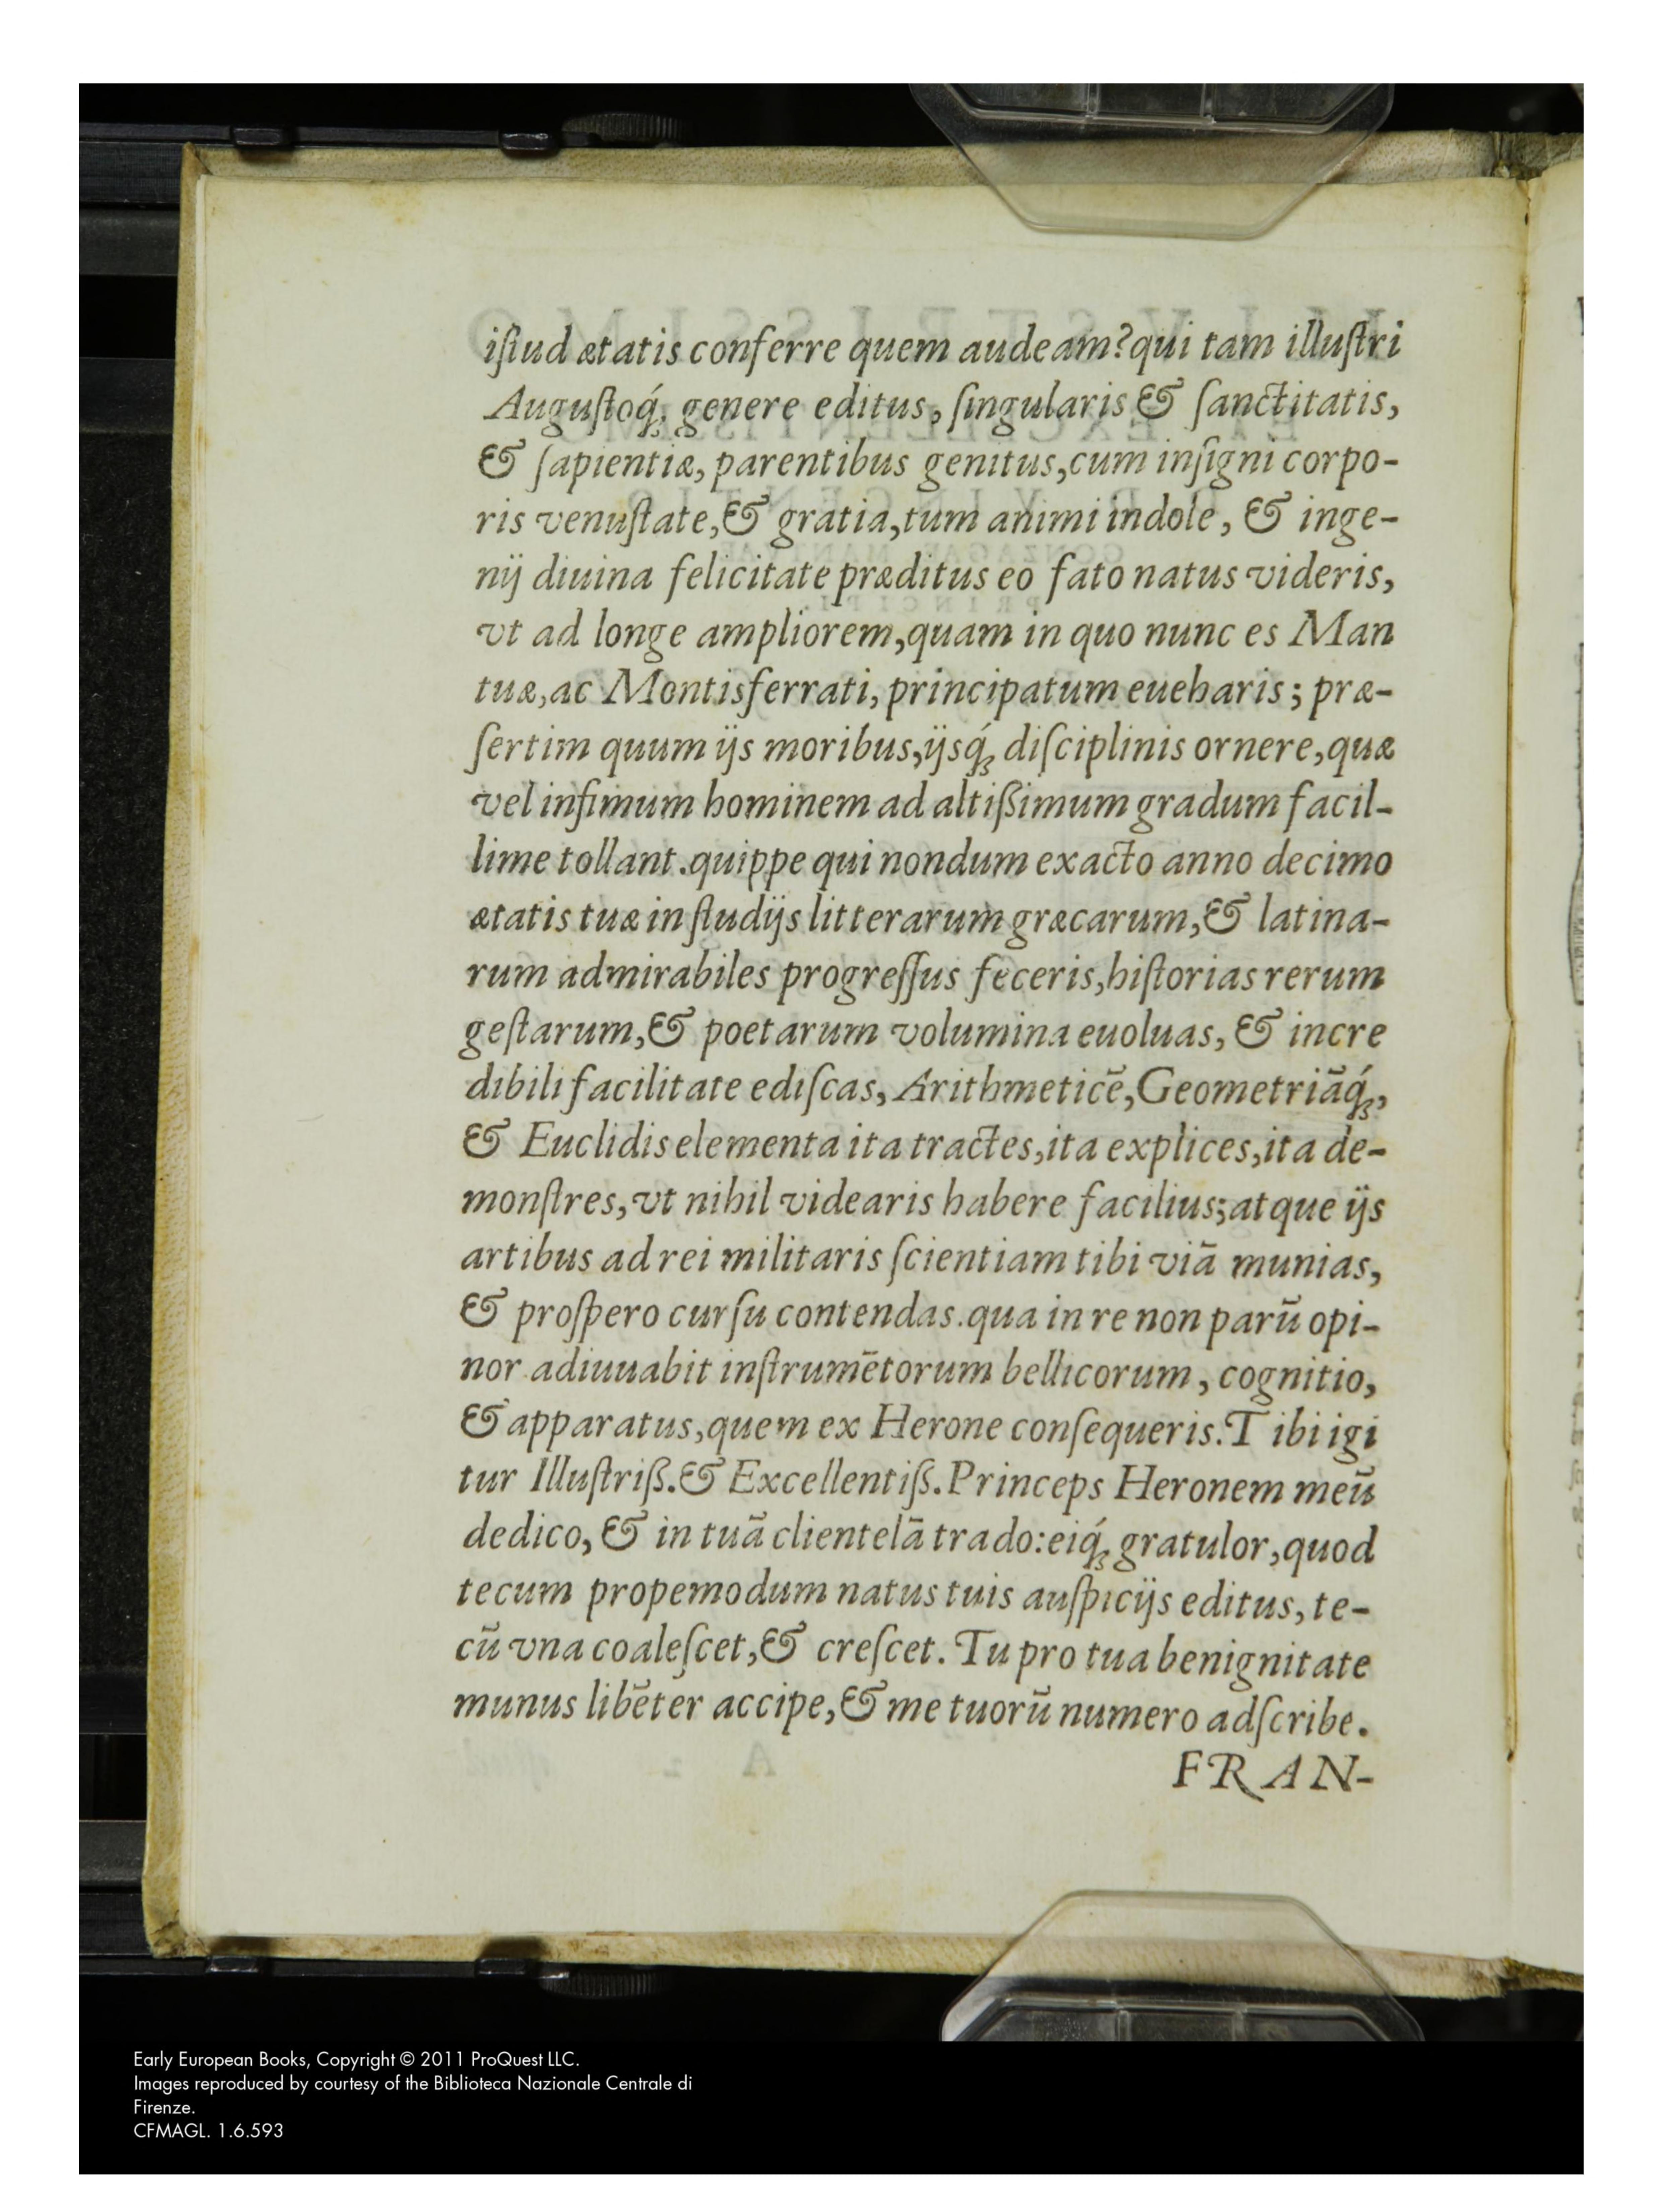 iſtud ætatis conferre quem audeam? qui tam illuſtri
Auguſtoq́;, genere editus, ſingularis & ſanctitatis,
& ſapientiæ, parentibus genitus, cum inſigni corpo-
ris venuſtate, & gratia, tum animi indole, & inge-
nij diuina felicitate præditus eo fato natus videris,
vt ad longe ampliorem, quam in quo nunc es Man
tuæ, ac Montisferrati, principatum eueharis; præ-
ſertim quum ijs moribus, ijsq́; diſciplinis ornere, quæ
vel infimum hominem ad altißimum gradum facil-
lime tollant. quippe qui nondum exacto anno decimo
ætatis tuæ in ſtudijs litterarum græcarum, & latina-
rum admirabiles progreſſus feceris, hiſtorias rerum
geſtarum, & poetarum volumina euoluas, & incre
dibili facilitate ediſcas, Arithmeticē, Geometriāq́;,
& Euclidis elementa ita tractes, ita explices, ita de-
monſtres, vt nihil videaris habere facilius; atque ijs
artibus ad rei militaris ſcientiam tibi viā munias,
& proſpero curſu contendas. qua in re non parū opi-
nor adiuuabit inſtrumētorum bellicorum, cognitio,
& apparatus, quem ex Herone conſequeris. Tibi igi
tur Illuſtriß. & Excellentiß. Princeps Heronem meū
dedico, & in tuā clientelā trado: eiq́; gratulor, quod
tecum propemodum natus tuis auſpicijs editus, te-
cū vna coaleſcet, & creſcet. Tu pro tua benignitate
munus libēter accipe, & me tuorū numero adſcribe.
FRAN-
Early European Books, Copyright © 2011 ProQuest LLC.
Images reproduced by courtesy of the Biblioteca Nazionale Centrale di
Firenze.
CFMAGL. 1.6.593